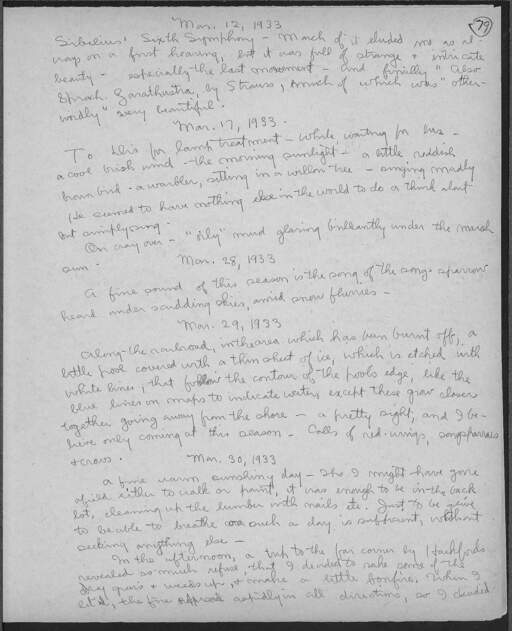 79
Mar. 12, 1933
Sibelius' Sixth Symphony - Much of it eluded me as it
was on a first hearing, but it was full of strange & intricate
beauty - especially the last movement - And finally "Also
Sprach Zarathustra, by Strauss, much of which was "other-
worldly" very beautiful.
Mar. 17, 1933.
To for lamp treatment - while waiting for bus -
a cool brisk wind - the morning sunlight - a little reddish
brown bird - a warbler, sitting in a willow tree - singing madly
He seemed to have nothing else in the world to do or think about
but simply sing -
On way over - "oily" mud glaring brilliantly under the March
sun -
Mar. 28, 1933
A fine sound of this season is the song of the song-sparrow
heard under scudding skies, amid snow flurries -
Mar. 29, 1933
Along the railroad, in the area which has been burnt off, a
little pool covered with a thin sheet of ice, which is etched with
white lines, that follow the contour of the pools edge, like the
blue lines on maps to indicate water, except these grow closer
together going away from the shore - a pretty sight, and I be-
lieve only coming at this season - Calls of red-wings, song sparrows
& crows.
Mar. 30, 1933
A fine warm sunshiny day - Tho I might have gone
afield either to walk or paint, it was enough to be in the back
lot, cleaning up the lumber with nails etc. Just to be alive,
to be able to breathe on such a day is sufficient, without
seeking anything else -
In the afternoon, a trip to the far corner by
revealed so much refuse that I decided to rake some of the
dry grass & weeds up, & make a little bonfire. When I
lit it, the fire spread rapidly in all directions, so I decided